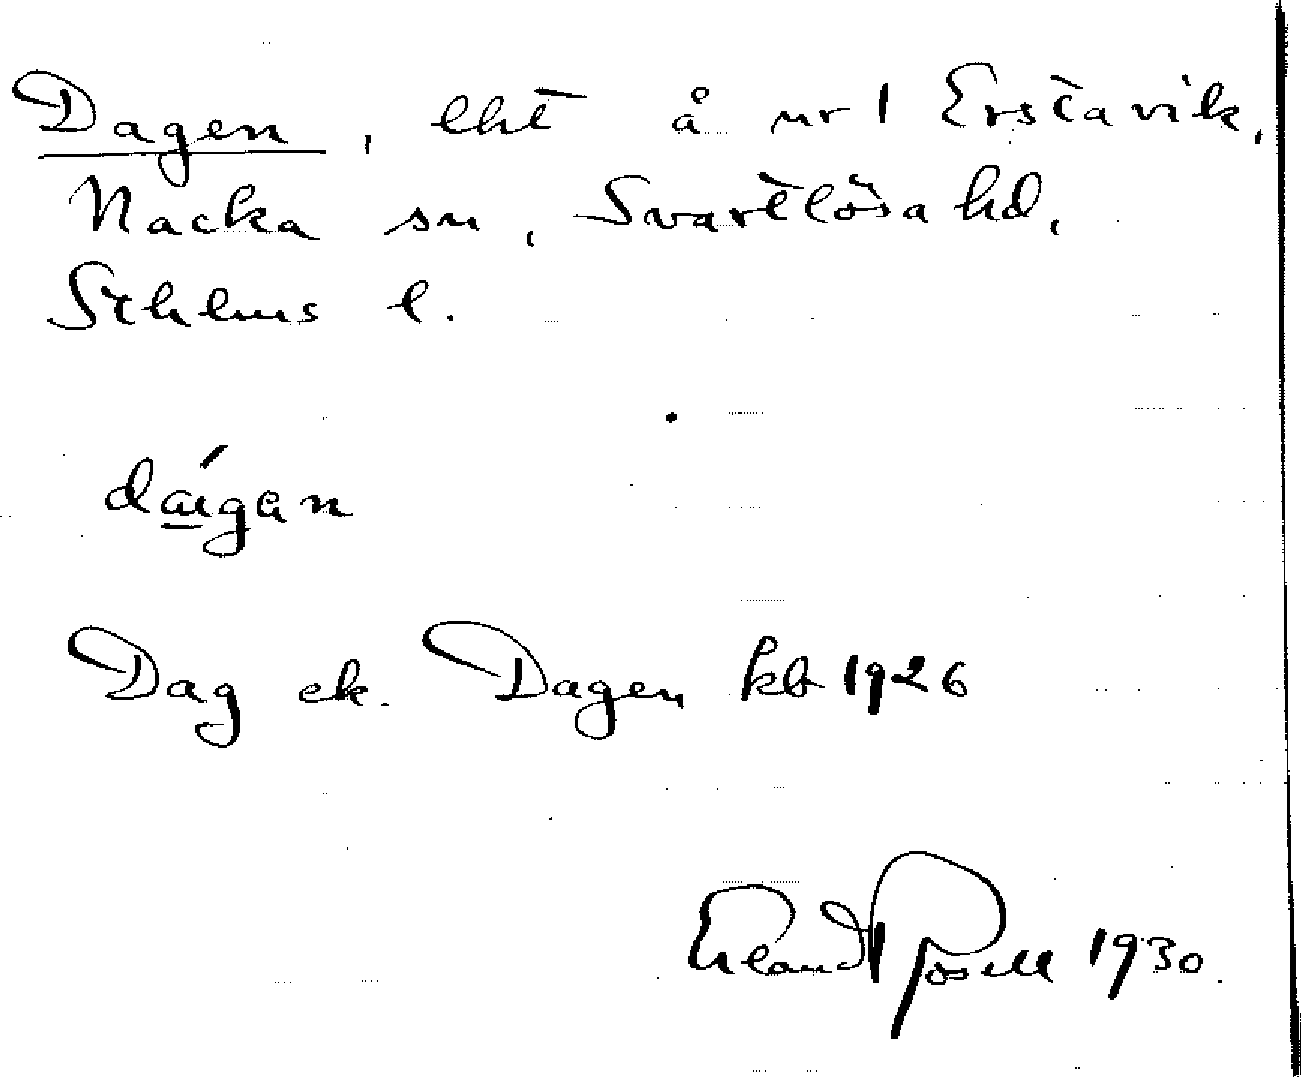 Dagen, lht å nr 1 Erstavik,
Nacka sn, Svartlösa hd,
Sthlms l.
dágən
Dag ek. Dagen kb 1926
Erland Rosell 1930.